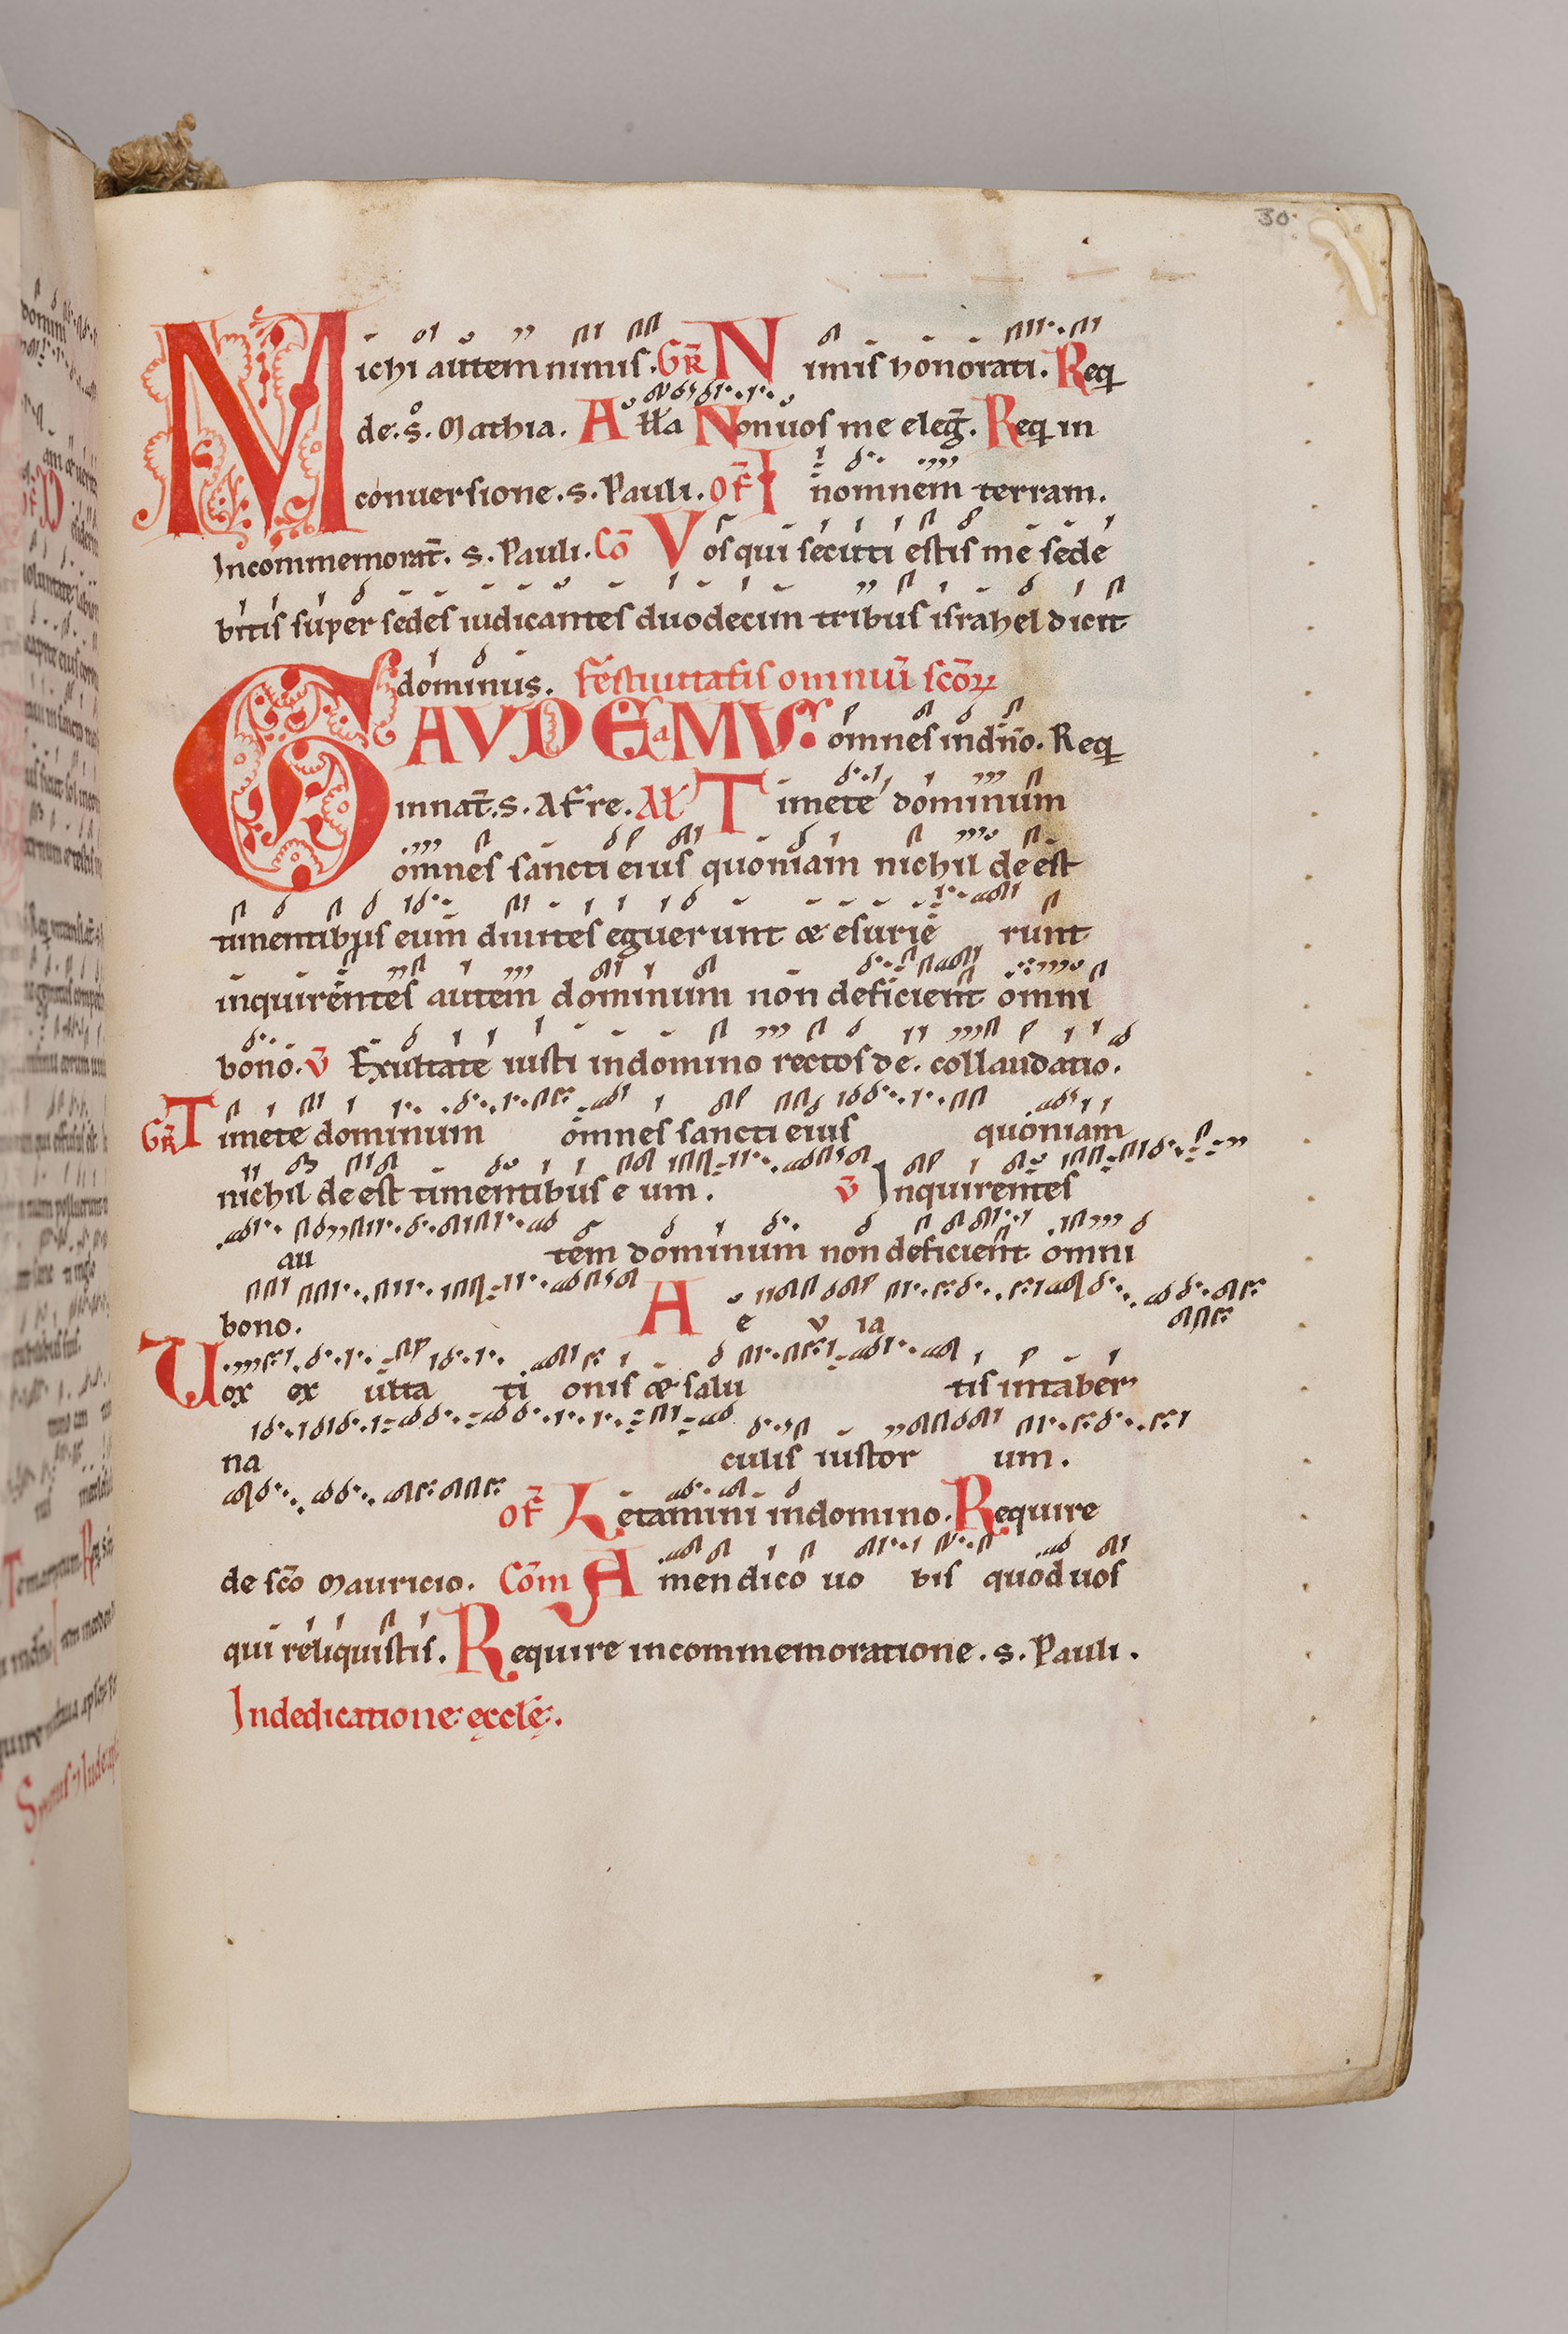 30
Michi autem nimis. GR̄ Nimis honorati. Req
de. s̊. Mathia. A ll̄a Non uos me eleḡ. Req in
conuersione. s. Pauli. OF̄ In omnem terram.
In commemorat̄. s. Pauli. Cō Vos qui secuti estis me sede
bitis super sedes iudicantes duodecim tribus israhel dicit
dominus. Festiuitatis omniū scōꝝ
GAVDEaMVS omnes in dn̄o. Req
in nat̄. s. Afre. Al̄ Timete dominum
omnes sancti eius quoniam nichil deest
timentibus eum diuites eguerunt & esurie runt
inquirentes autem dominum non deficient omni
bono. V̄ Exultate iusti in domino rectos de. collaudatio.
GR̄ Timete dominum omnes sancti eius quoniam
nichil deest timentibus e um. V̄ Inquirentes
au tem dominum non deficient omni
bono. A e v ia
Uox ex ulta ti onis & salu tis in taber
na culis iustor um.
OF̄ Letamini in domino. Require
de scō Mauricio. Cōm Amen dico uo bis quod uos
qui reliquistis. Require in commemoratione. s. Pauli.
In dedicatione ęcclę.